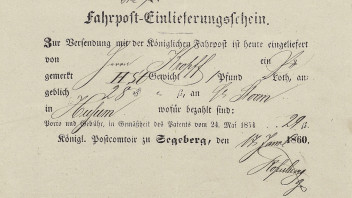 Fahrpost-Einlieferungsschein.
Zur Versendung mit der Königlichen Fahrpost ist heute eingeliefert
von Herrn ein
gemerkt Gewicht Pfund Loth, an-
geblich 28 an
in Husum wofür bezahlt sind:
Porto und Gebühr, in Gemäßheit des Patents vom 24. Mai 1854 29
Königl. Postcomtoir zu Segeberg, den 1860.